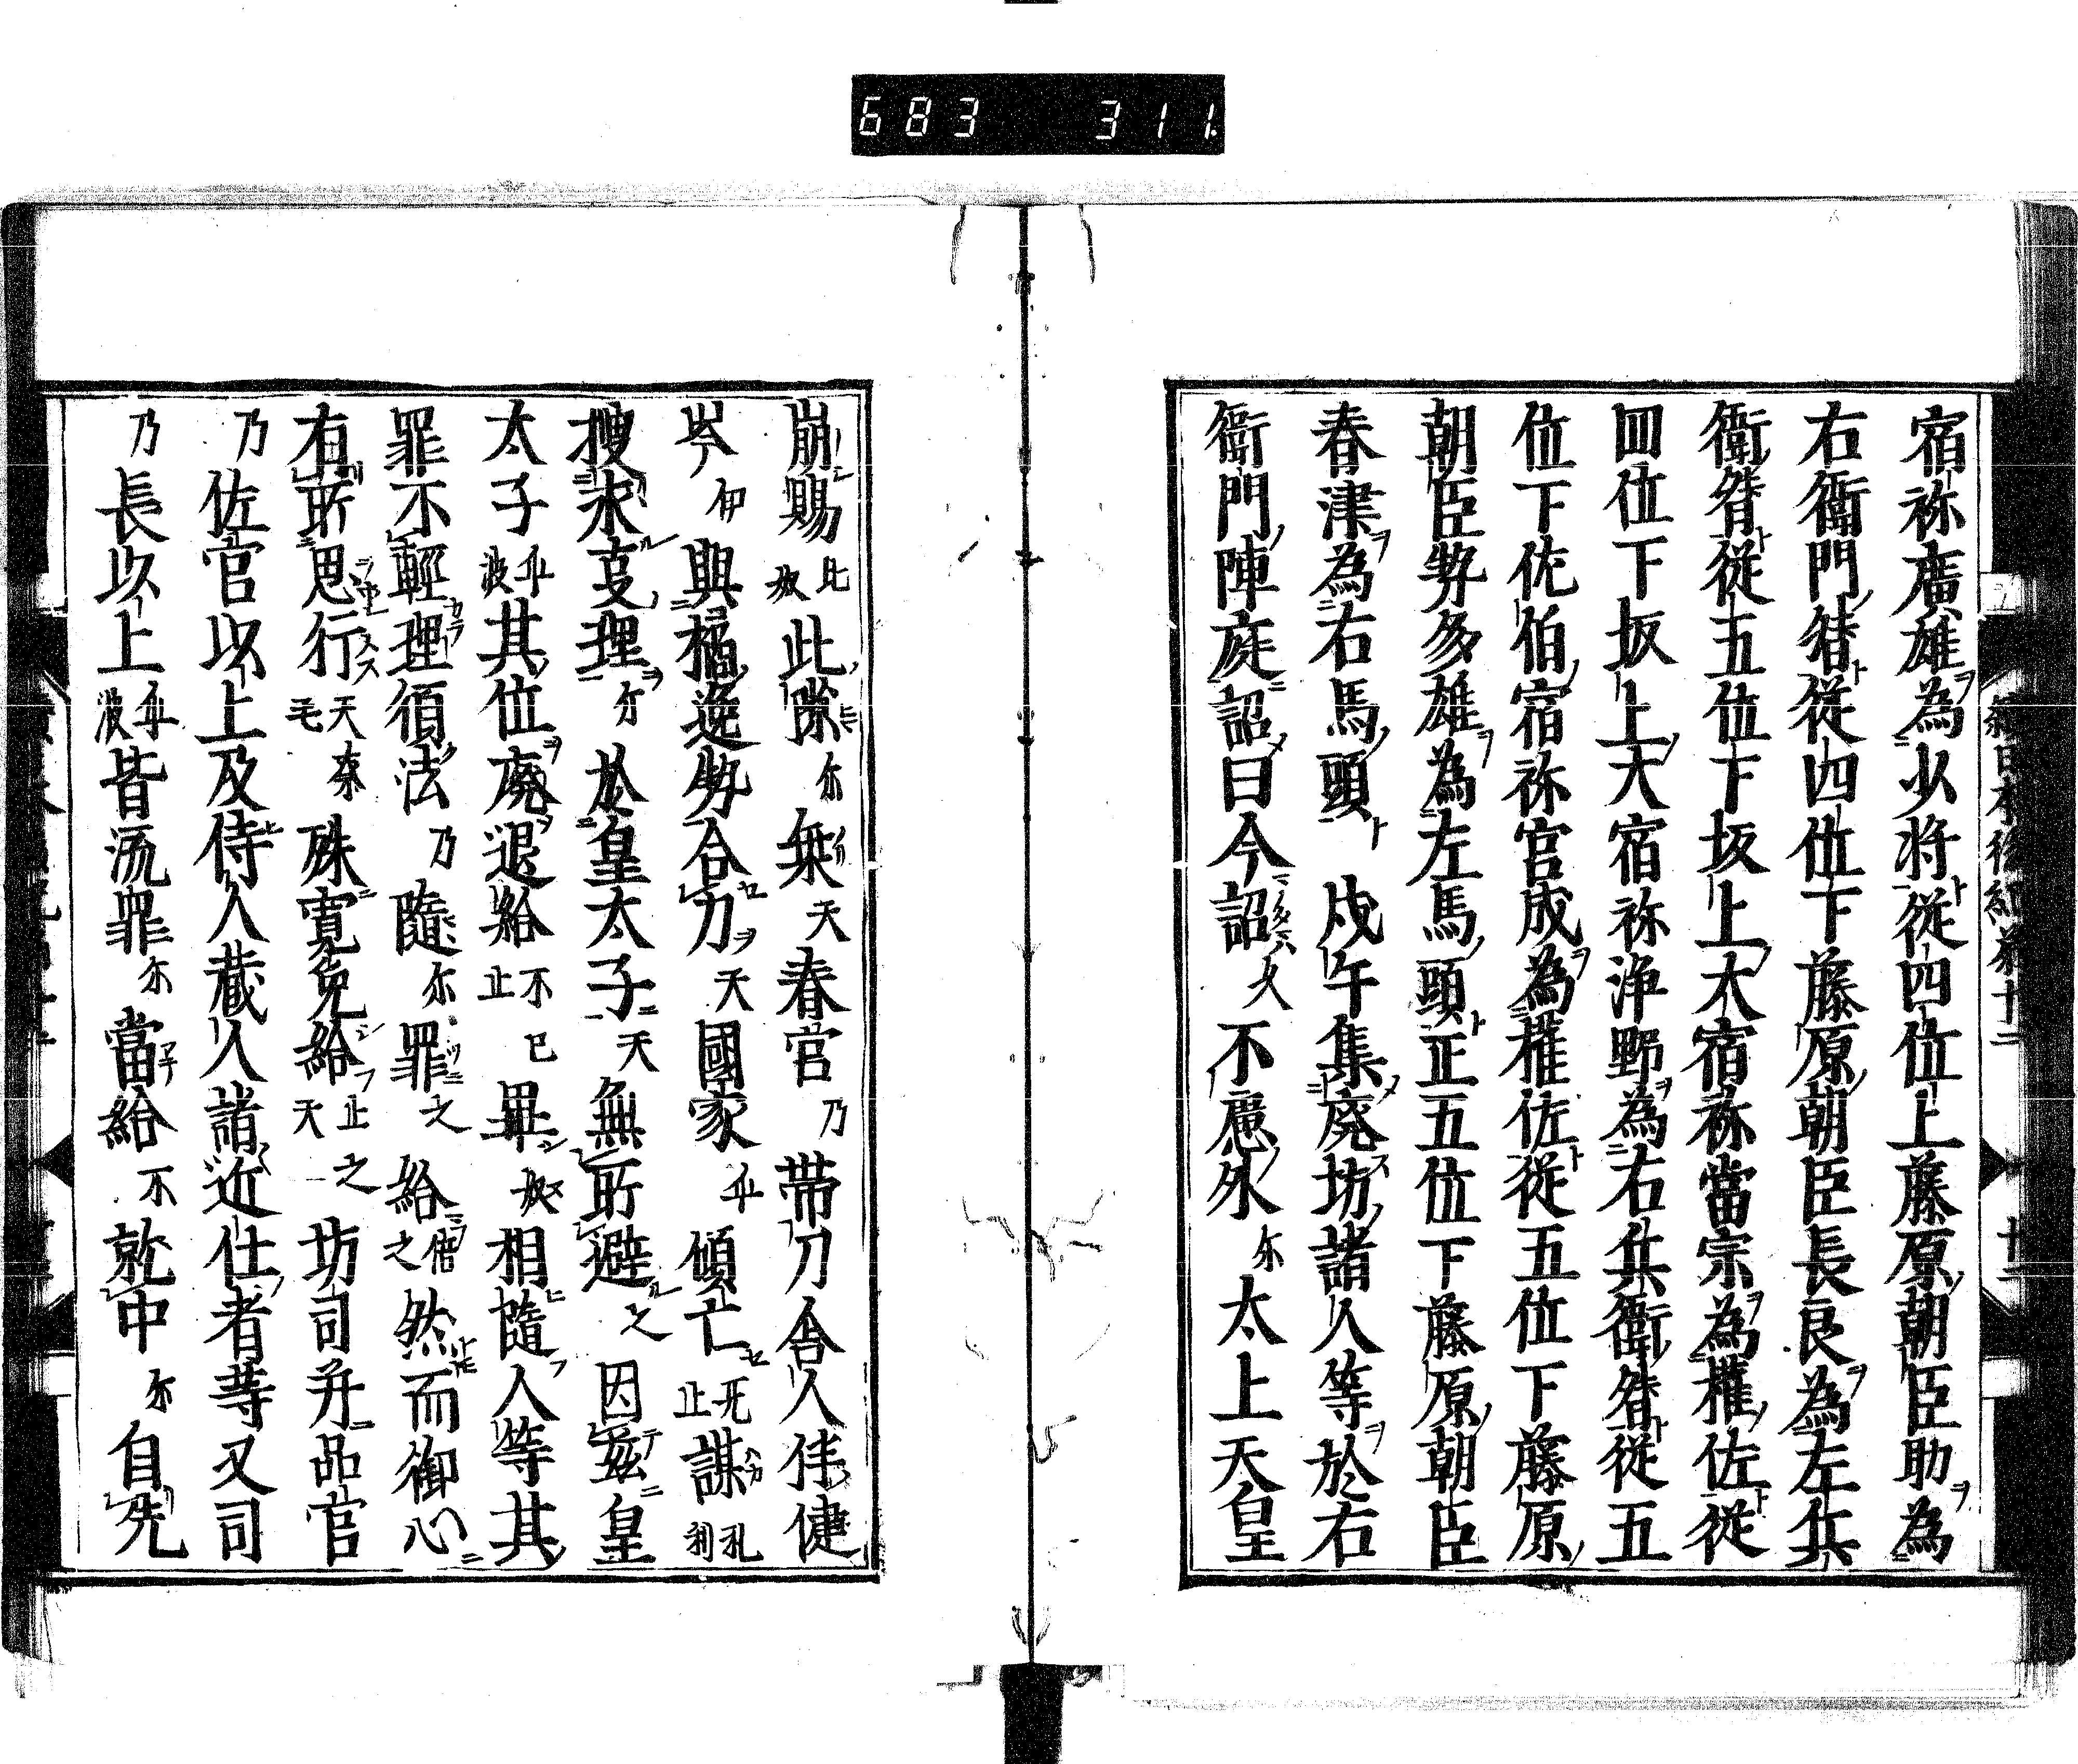 683 311
宿祢廣雄為少将從四位上藤原朝臣助為
右衛門督從四位下藤原朝臣長良為左兵
衛督從五位下坂上大宿祢當宗為權佐從
四位下坂上大宿祢浄野為右兵衛督從五
位下佐伯宿祢官成為權佐從五位下藤原
朝臣勢多雄為左馬頭正五位下藤原朝臣
春津為右馬頭戊午集廃坊諸人等於右
衛門陣庭詔曰今詔久不慮外尓太上天皇
崩賜比奴此隙尓無天春宮乃帯刀舎人伴健
岑伊與橘逸勢合力天國家乎傾亡无止謀礼利
捜求支理尓於皇太子天無所避之因茲皇
太子乎波其位廃退給不止已畢奴相隨人等其
罪不輕理須法乃隨尓罪之給倍之然而御心
有所思行天毛奈殊寛免給止天之坊司并品官
乃佐官以上及侍人蔵人諸近仕者等又司
乃長以上乎波皆流罪尓當給不就中尓自先